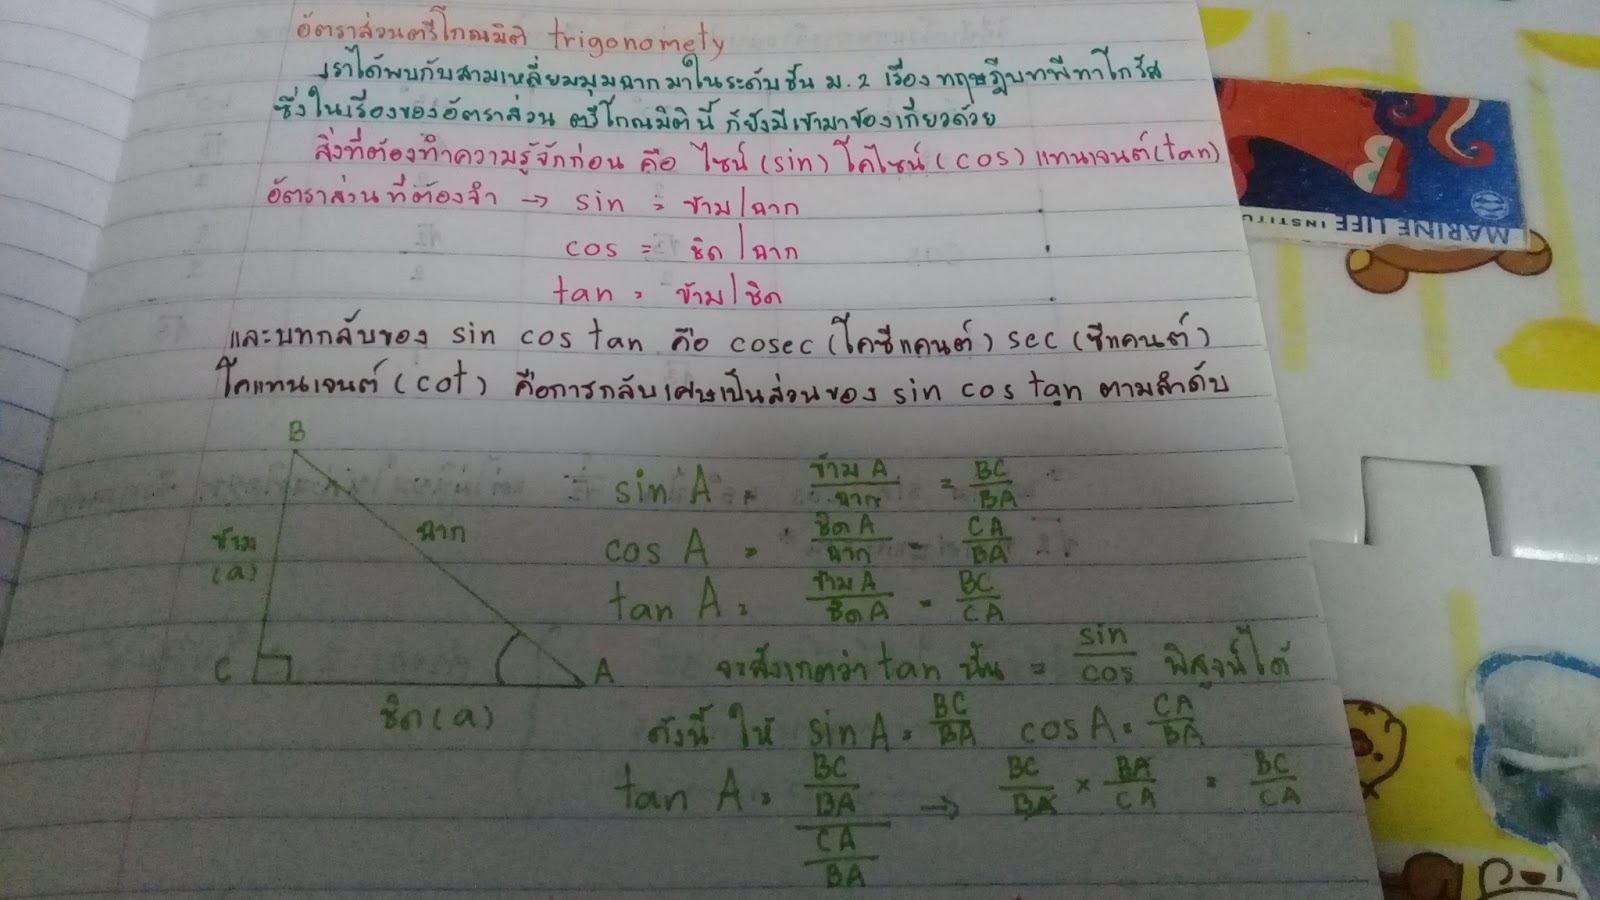 อัตราส่วนตรีโกณมิติ trigonomety
เราได้พบกับสามเหลี่ยมมุมฉากมาในระดับชั้น ม.2 เรื่องทฤษฎีบทพีทาโกรัส
ซึ่งในเรื่องของอัตราส่วน ตรีโกณมิตินี้ ก็ยังมีเข้ามาข้องเกี่ยวด้วย
สิ่งที่ต้องทำความรู้จักก่อน คือ ไซน์ (sin) โคไซน์ (cos) แทนเจนต์ (tan)
อัตราส่วนที่ต้องจำ → sin = ข้าม/ฉาก
cos = ชิด/ฉาก
tan = ข้าม/ชิด
และบทกลับของ sin cos tan คือ cosec (โคซีแคนต์) sec (ซีแคนต์)
โคแทนเจนต์ (cot) คือการกลับเศษเป็นส่วนของ sin cos tan ตามลำดับ
B
ข้าม
(a)
ฉาก
C
A
ชิด (a)
sin A = ข้าม A/ฉาก = BC/BA
cos A = ชิด A/ฉาก = CA/BA
tan A = ข้าม A/ชิด A = BC/CA
จะสังเกตว่า tan นั้น = sin/cos พิสูจน์ได้
ดังนี้ ให้ sin A = BC/BA cos A = CA/BA
tan A = BC/BA / CA/BA → BC/BA × BA/CA = BC/CA
MARINE LIFE INSTITU